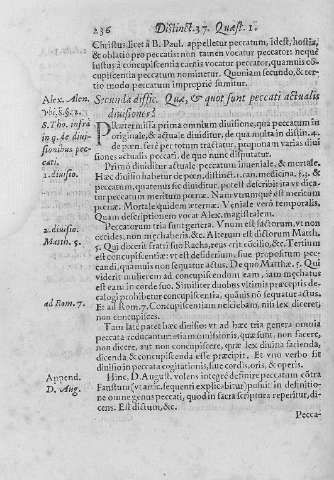 236 Distinct. 37. Quæst. 1.
Christus. Ecce à B. Paul. appelletur peccatum, idest, hostia,
& oblatio pro peccatis: non tamen vocatur peccator: neque
iustus à concupiscentia carnis vocatur peccator, quamuis con-
cupiscentia peccatum nominetur. Quoniam secundo, & ter-
tio modo peccatum impropriè sumitur.
Alex. Alen.
S. Tho. infrà
in q. de diui-
sionibus pec-
cati.
Secunda diffic. Quæ, & quot sunt peccati actualis
diuisiones?
Præter illa prima omnium diuisione, qua peccatum in
originale, & actuale diuiditur, de qua multa in distin.
de pœn. sed per totum tractatur, propona m varias diui
siones actualis peccati, de quo nunc disputatur.
1. diuisio.
Primò diuiditur actuale peccatum in veniale, & mortale.
Hæc diuisio habetur de pœn. distinct. 1. can. medicina, & §. &
peccatum, quatenus sic diuiditur, potest describi ita vt dica-
tur peccatum meritum pœnæ. Nam vtrumque est meritum
pœnæ. Mortale quidem æternæ. Veniale verò temporalis.
Quam descriptionem vocat Alex. magistralem.
2. diuisio.
Matth. 5.
Peccatorum tria sunt genera. Vnum est factorum, vt non
occides, non mœchaberis, &c. Alterum est dictorum Matth.
5. Qui dixerit fratri suo Racha, reus erit cōcilio, &c. Tertium
est concupiscentiæ: vt est desiderium, siue propositum pec-
candi, quamuis non sequatur actus. De quo Matthæ. 5. Qui
viderit mulierem ad concupiscendum eam, iam mœchatus
est eam in corde suo. Similiter duobus vltimis præceptis de-
calogi prohibetur concupiscentia, quāuis nō sequatur actus.
ad Rom. 7.
Et ad Rom. 7. Concupiscentiam nesciebam, nisi lex diceret,
non concupisces.
Tam latè patet hæc diuisio: vt ad hæc tria genera omnia
peccata reducantur: etiam omissionis, quæ sunt, non facere,
non dicere, aut non concupiscere, quæ lex diuina facienda,
dicenda, & concupiscenda esse præcipit. Et vno verbo sit
diuisio in peccata cogitationis, siue cordis, oris, & operis.
Append.
D. Aug.
Hinc D. August. volens integrè definire peccatum cōtra
Faustum (vt artic. sequenti explicabitur) posuit in definitio-
ne omne genus peccati, quod in sacra scriptura reperitur, di-
cens. Est dictum, &c.
Pecca-